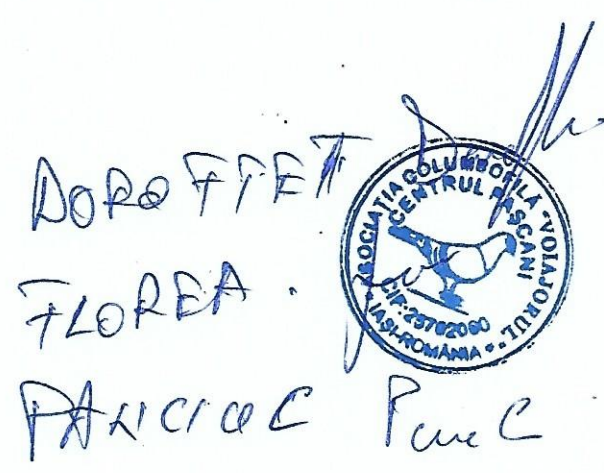 DOROFTEI
FLOREA .
PANCIUC
ASOCIAȚIA COLUMBOFILĂ "VOIAJORUL"
CENTRUL PASCANI
CIF: 25792060
* IAȘI-ROMÂNIA *